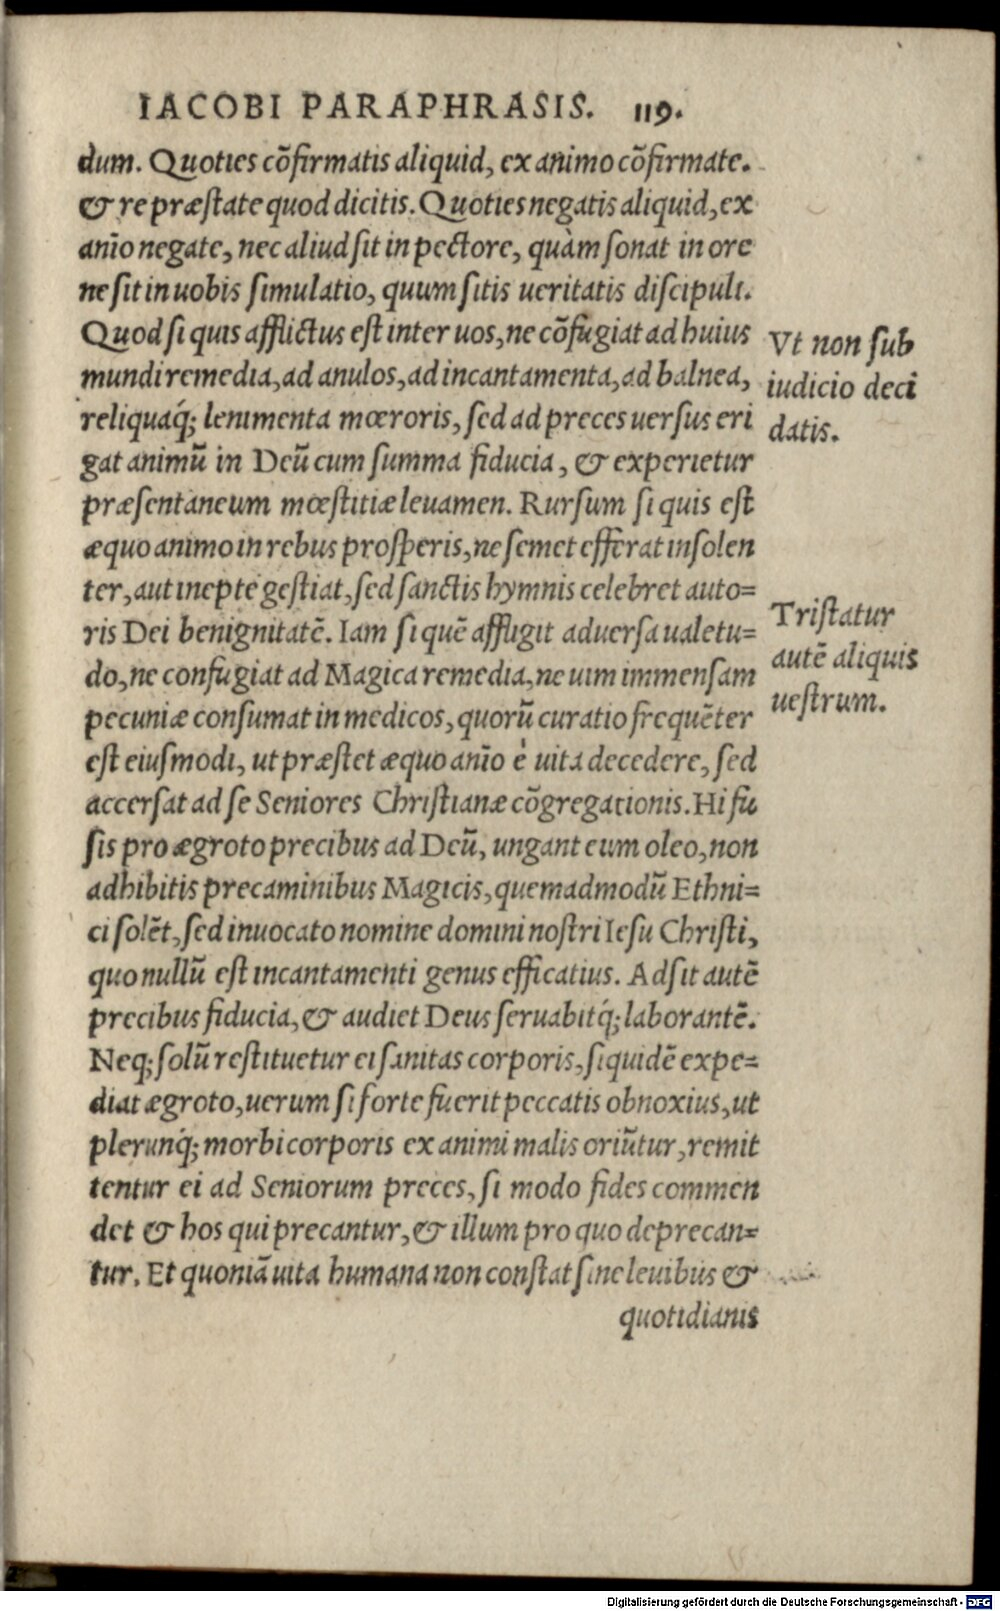 IACOBI PARAPHRASIS. 119.
dum. Quoties cõfirmatis aliquid, ex animo cõfirmate.
& re præstate quod dicitis. Quoties negatis aliquid, ex
anĩo negate, nec aliud sit in pectore, quàm sonat in ore
ne sit in uobis simulatio, quum sitis ueritatis discipuli.
Quod si quis afflictus est inter uos, ne cõfugiat ad huius
mundi remedia, ad anulos, ad incantamenta, ad balnea,
reliquaq́; lenimenta mœroris, sed ad preces uersus eri
gat animũ in Deũ cum summa fiducia, & experietur
præsentaneum mœstitiæ leuamen. Rursum si quis est
æquo animo in rebus prosperis, ne semet efferat insolen
ter, aut inepte gestiat, sed sanctis hymnis celebret auto=
ris Dei benignitatẽ. Iam si quẽ affligit aduersa ualetu=
do, ne confugiat ad Magica remedia, ne uim immensam
pecuniæ consumat in medicos, quorũ curatio frequẽter
est eiusmodi, ut præstet æquo anĩo è uita decedere, sed
accersat ad se Seniores Christianæ cõgregationis. Hi fu
sis pro ægroto precibus ad Deũ, ungant eum oleo, non
adhibitis precaminibus Magicis, quemadmodũ Ethni=
ci solẽt, sed inuocato nomine domini nostri Iesu Christi,
quo nullũ est incantamenti genus efficatius. Adsit autẽ
precibus fiducia, & audiet Deus seruabitq́; laborantẽ.
Neq; solũ restituetur ei sanitas corporis, siquidẽ expe=
diat ægroto, uerum si forte fuerit peccatis obnoxius, ut
plerunq́; morbi corporis ex animi malis oriũtur, remit
tentur ei ad Seniorum preces, si modo fides commen
det & hos qui precantur, & illum pro quo deprecan=
tur. Et quoniã uita humana non constat sine leuibus &
quotidianis
Vt non sub
iudicio deci
datis.
Tristatur
autẽ aliquis
uestrum.
Digitalisierung gefördert durch die Deutsche Forschungsgemeinschaft - DFG